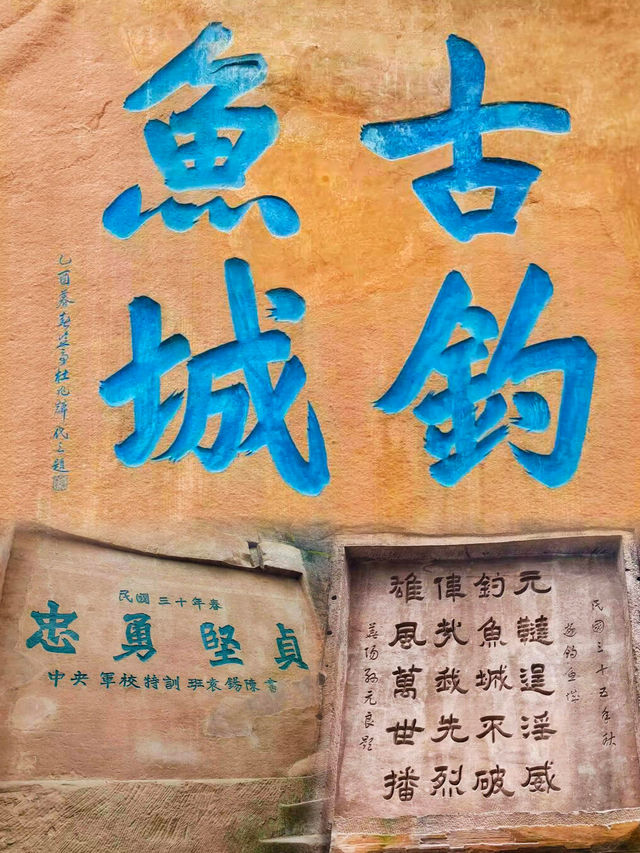 古釣
魚城
乙酉暮春
民國三十年春
忠勇堅貞
中央軍校特訓班袁錫陳書
民國三十五年秋
遊釣魚城
元韃逞淫威
釣魚城不破
偉哉我先烈
雄風萬世播
華陽孫元良題